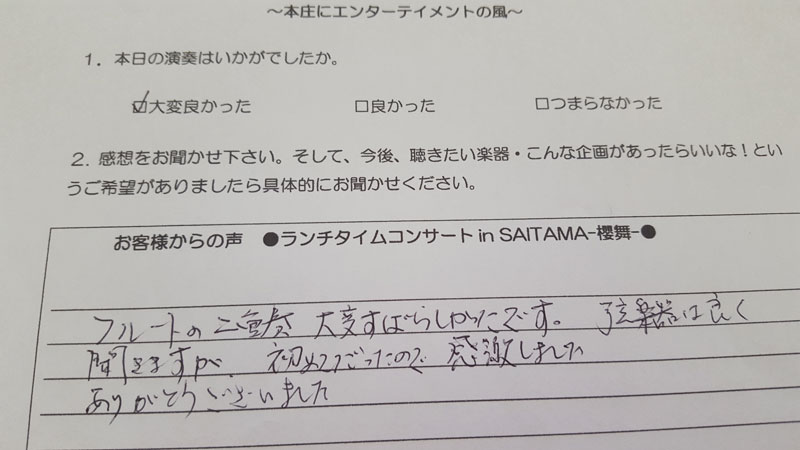 ～本庄にエンターテイメントの風～
１．本日の演奏はいかがでしたか。
☑大変良かった □良かった □つまらなかった
２．感想をお聞かせ下さい。そして、今後、聴きたい楽器・こんな企画があったらいいな！とい
うご希望がありましたら具体的にお聞かせください。
お客様からの声 ●ランチタイムコンサート in SAITAMA-櫻舞-●
フルートの二重奏 大変すばらしかったです。弦楽器は良く
聞きますが、初めてだったので感激しました
ありがとうございました